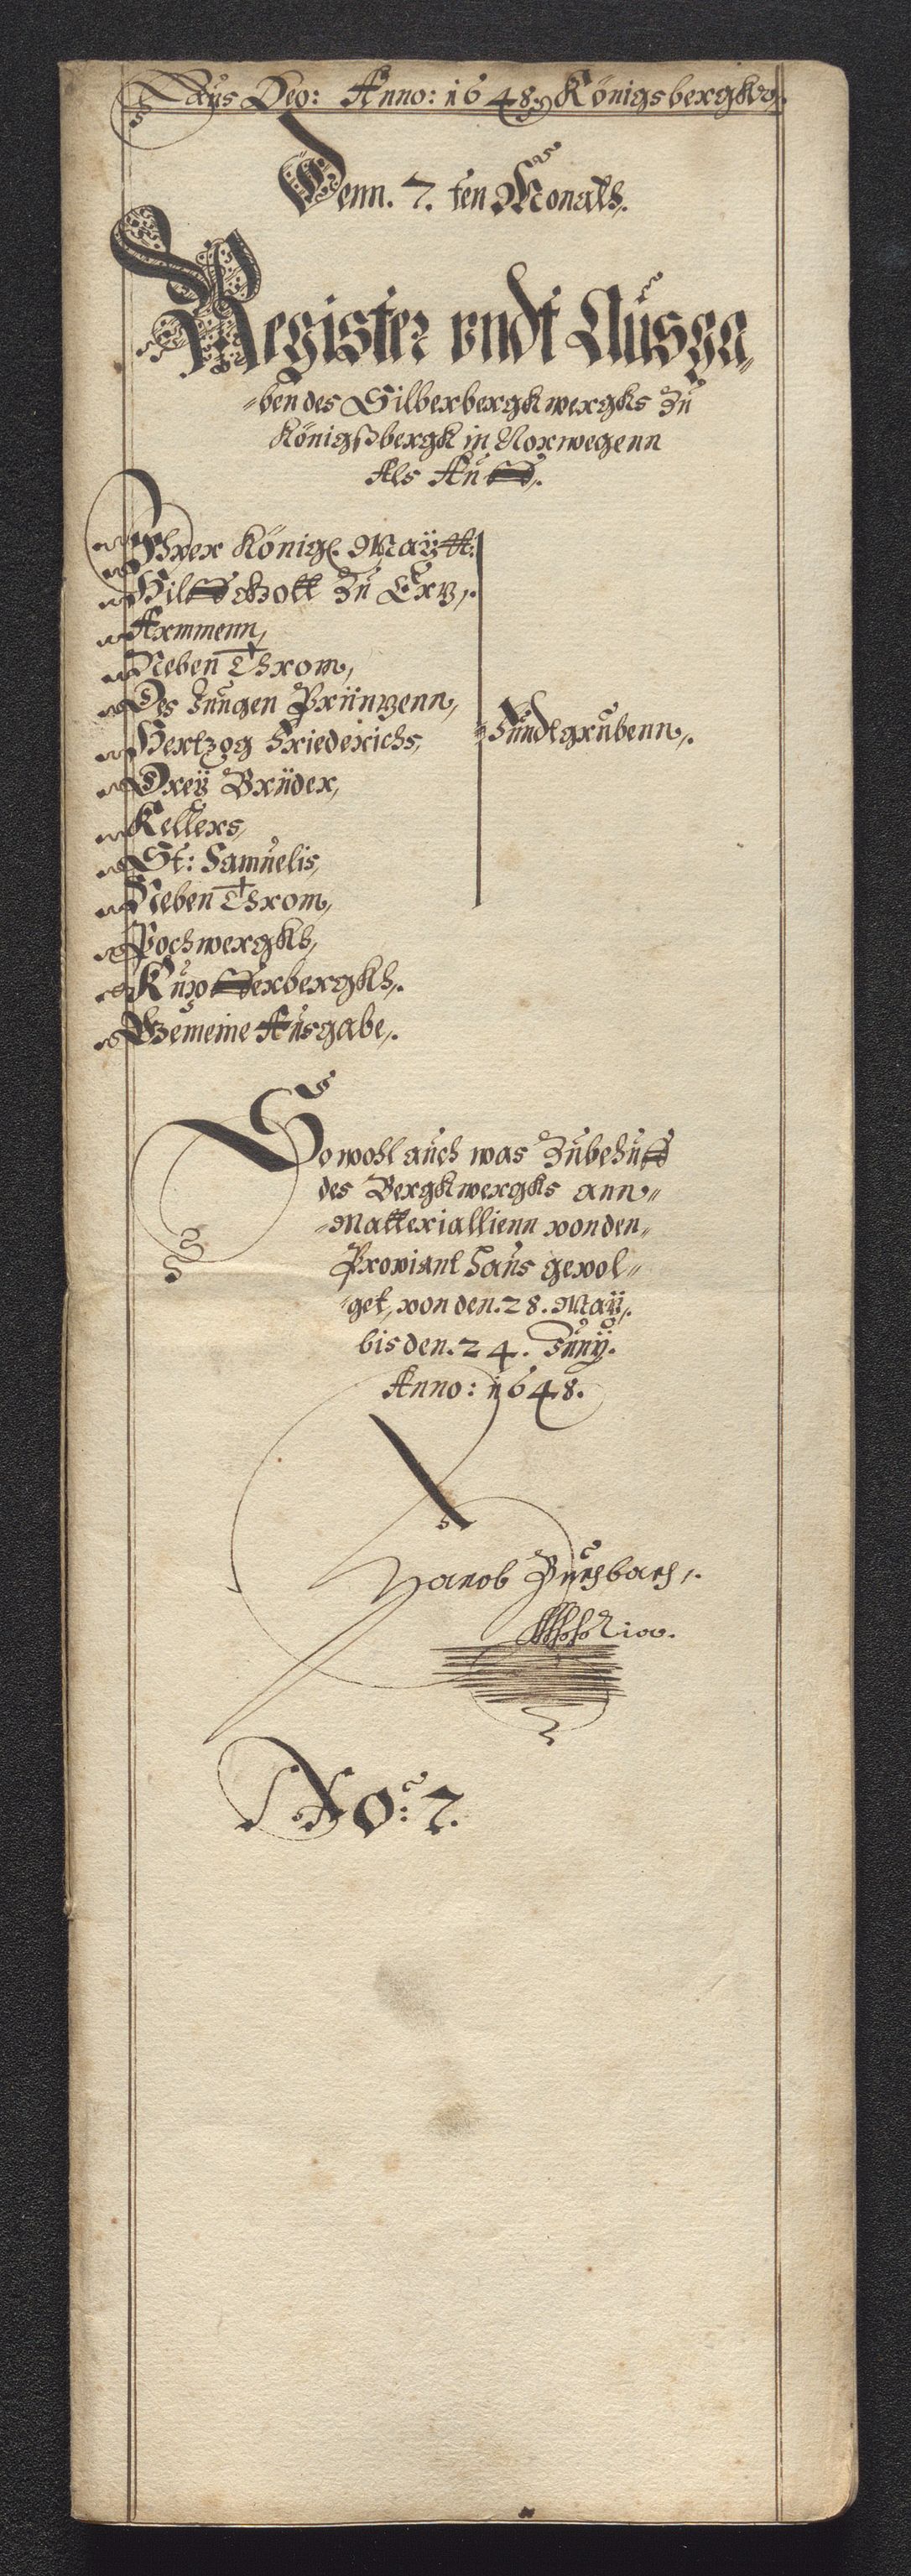 Laus Deo: Anno: 1648. Königsbergk.
Denn. 7. ten Monats.
Register undt Ausga„
„ben des Silberbergkwergks Zu
Königßbergk in Norwegenn
Als Auff.
Ihrer Königl. Maÿtt:
Hilff Gott Zu Ertz,.
Armmenn,
Neben Throm,
Des Jungen Prüntzenn,
Hertzog Friederichs,
Dreÿ Brüder,
Kellers,
St: Samuelis,
Neben Throm,
Fundtgrubenn,.
Pochwergks,
Kupfferbergks,.
Gemeine Ausgabe,.
So wohl auch was Zubehuff
des Bergkwergks ann„
„Matteriallienn von den„
Proviant Haus gevol„
„get, von den. 28. Maÿ,.
bis den. 24. Junÿ.
Anno: 1648.
Jacob Buchbach,.
No: 7.